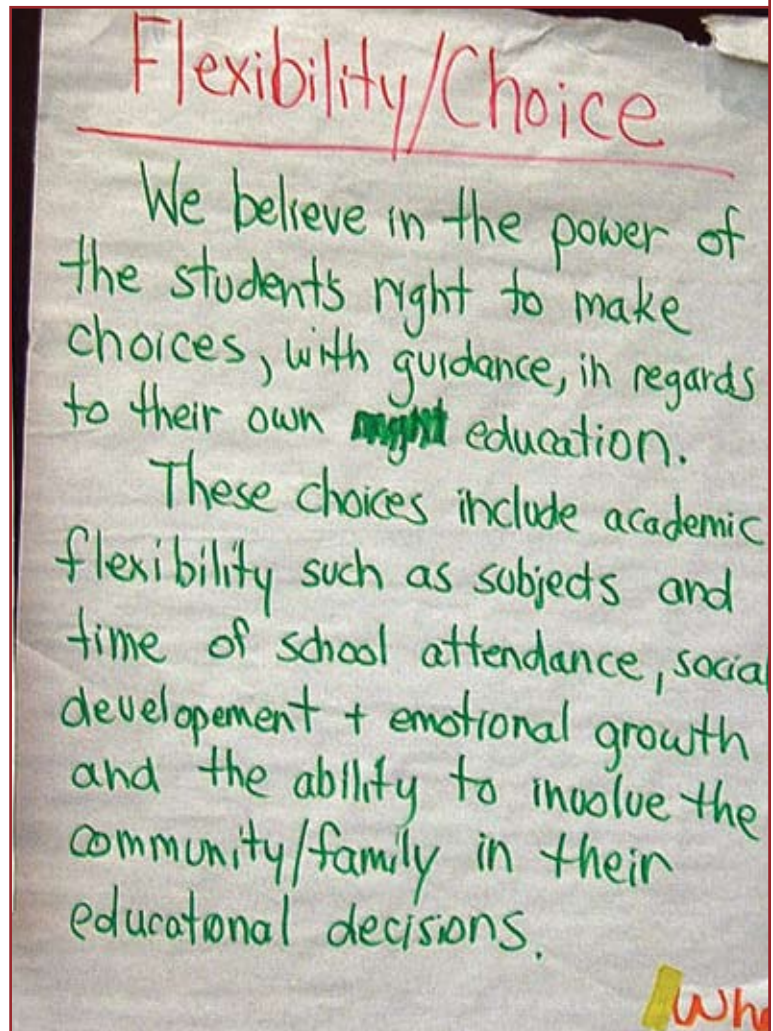 Flexibility/Choice
We believe in the power of
the students right to make
choices, with guidance, in regards
to their own education.
These choices include academic
flexibility such as subjects and
time of school attendance, social
developement + emotional growth
and the ability to involve the
community/family in their
educational decisions.